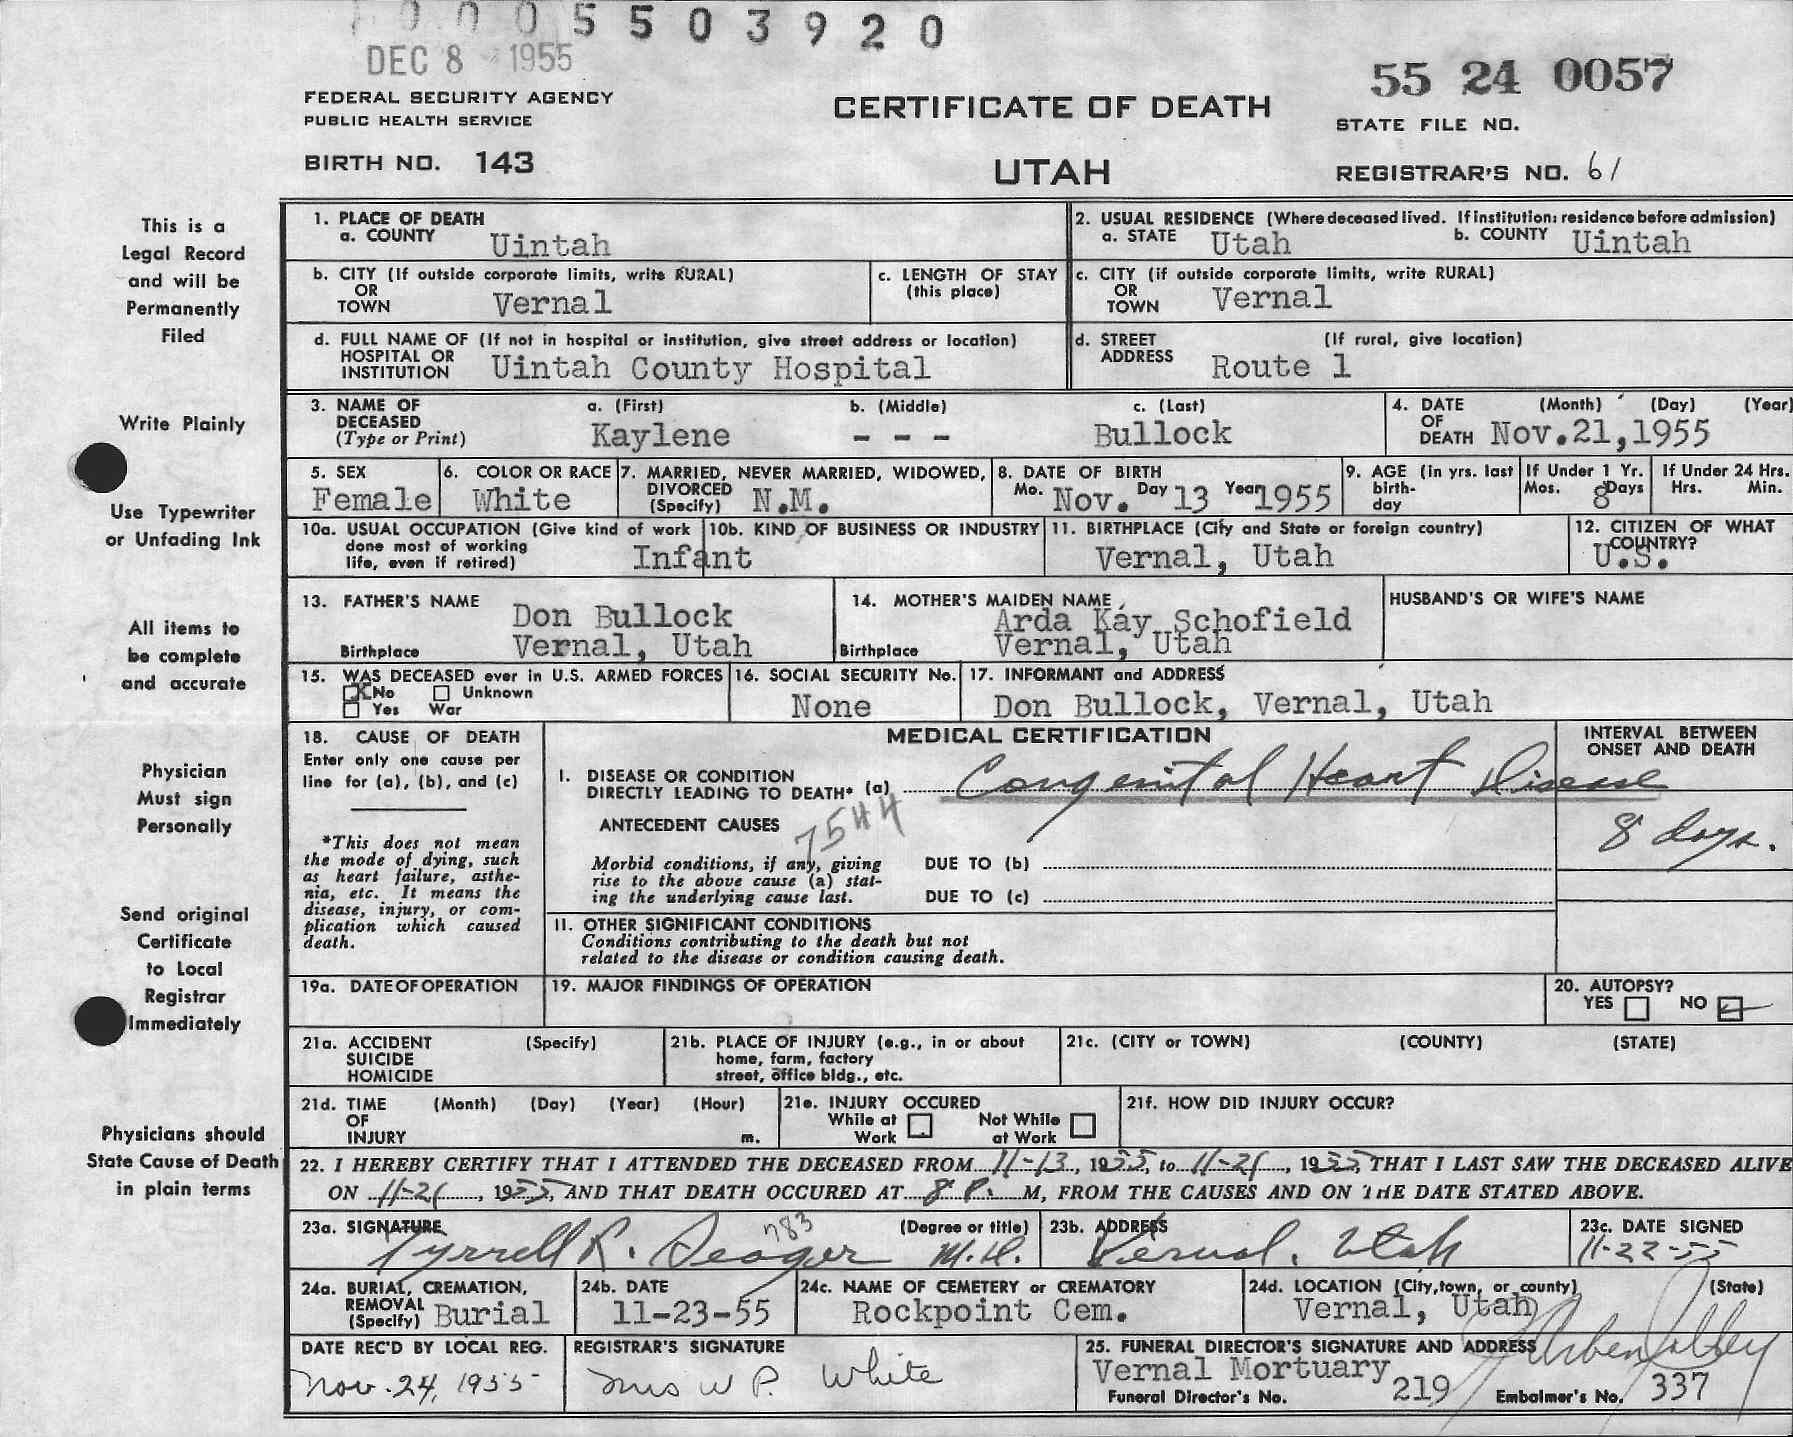 0005503920
DEC 8 1955
55 24 0057
FEDERAL SECURITY AGENCY
PUBLIC HEALTH SERVICE
CERTIFICATE OF DEATH
STATE FILE NO.
BIRTH NO. 143
UTAH
REGISTRAR'S NO. 61
This is a
Legal Record
and will be
Permanently
Filed
Write Plainly
Use Typewriter
or Unfading Ink
All items to
be complete
and accurate
Physician
Must sign
Personally
Send original
Certificate
to Local
Registrar
Immediately
Physicians should
State Cause of Death
in plain terms
1. PLACE OF DEATH
a. COUNTY Uintah
2. USUAL RESIDENCE (Where deceased lived. If institution: residence before admission)
a. STATE Utah b. COUNTY Uintah
b. CITY (If outside corporate limits, write RURAL)
OR
TOWN Vernal
c. LENGTH OF STAY
(this place)
c. CITY (if outside corporate limits, write RURAL)
OR
TOWN Vernal
d. FULL NAME OF (If not in hospital or institution, give street address or location)
HOSPITAL OR
INSTITUTION Uintah County Hospital
d. STREET (If rural, give location)
ADDRESS Route 1
3. NAME OF a. (First) b. (Middle) c. (Last)
DECEASED
(Type or Print) Kaylene - - - Bullock
4. DATE (Month) (Day) (Year)
OF
DEATH Nov.21,1955
5. SEX
Female
6. COLOR OR RACE
White
7. MARRIED, NEVER MARRIED, WIDOWED,
DIVORCED
(Specify) N.M.
8. DATE OF BIRTH
Mo. Nov. Day 13 Year 1955
9. AGE (in yrs. last
birth-
day
If Under 1 Yr.
Mos. 8 Days
If Under 24 Hrs.
Hrs. Min.
10a. USUAL OCCUPATION (Give kind of work
done most of working
life, even if retired) Infant
10b. KIND OF BUSINESS OR INDUSTRY
11. BIRTHPLACE (City and State or foreign country)
Vernal, Utah
12. CITIZEN OF WHAT
COUNTRY?
U.S.
13. FATHER'S NAME Don Bullock
Birthplace Vernal, Utah
14. MOTHER'S MAIDEN NAME
Arda Kay Schofield
Birthplace Vernal, Utah
HUSBAND'S OR WIFE'S NAME
15. WAS DECEASED ever in U.S. ARMED FORCES
X No Unknown
Yes War
16. SOCIAL SECURITY No.
None
17. INFORMANT and ADDRESS
Don Bullock, Vernal, Utah
18. CAUSE OF DEATH
Enter only one cause per
line for (a), (b), and (c)
*This does not mean
the mode of dying, such
as heart failure, asthe-
nia, etc. It means the
disease, injury, or com-
plication which caused
death.
MEDICAL CERTIFICATION
INTERVAL BETWEEN
ONSET AND DEATH
I. DISEASE OR CONDITION
DIRECTLY LEADING TO DEATH* (a) Congenital Heart Disease
8 days.
ANTECEDENT CAUSES 7544
Morbid conditions, if any, giving
rise to the above cause (a) stat-
ing the underlying cause last.
DUE TO (b)
DUE TO (c)
II. OTHER SIGNIFICANT CONDITIONS
Conditions contributing to the death but not
related to the disease or condition causing death.
19a. DATE OF OPERATION
19. MAJOR FINDINGS OF OPERATION
20. AUTOPSY?
YES NO
21a. ACCIDENT (Specify)
SUICIDE
HOMICIDE
21b. PLACE OF INJURY (e.g., in or about
home, farm, factory
street, office bldg., etc.
21c. (CITY or TOWN) (COUNTY) (STATE)
21d. TIME (Month) (Day) (Year) (Hour)
OF
INJURY m.
21e. INJURY OCCURED
While at Not While
Work at Work
21f. HOW DID INJURY OCCUR?
22. I HEREBY CERTIFY THAT I ATTENDED THE DECEASED FROM 11-13, 1955, to 11-21, 1955, THAT I LAST SAW THE DECEASED ALIVE
ON 11-21, 1955, AND THAT DEATH OCCURED AT 8 P. M, FROM THE CAUSES AND ON THE DATE STATED ABOVE.
23a. SIGNATURE 783 (Degree or title)
Tyrrell R. Seager M.D.
23b. ADDRESS
Vernal, Utah
23c. DATE SIGNED
11-22-55
24a. BURIAL, CREMATION,
REMOVAL
(Specify) Burial
24b. DATE
11-23-55
24c. NAME OF CEMETERY or CREMATORY
Rockpoint Cem.
24d. LOCATION (City, town, or county) (State)
Vernal, Utah
DATE REC'D BY LOCAL REG.
Nov. 24, 1955
REGISTRAR'S SIGNATURE
Mrs W P. White
25. FUNERAL DIRECTOR'S SIGNATURE AND ADDRESS
Vernal Mortuary
Funeral Director's No. 219 Embalmer's No. 337